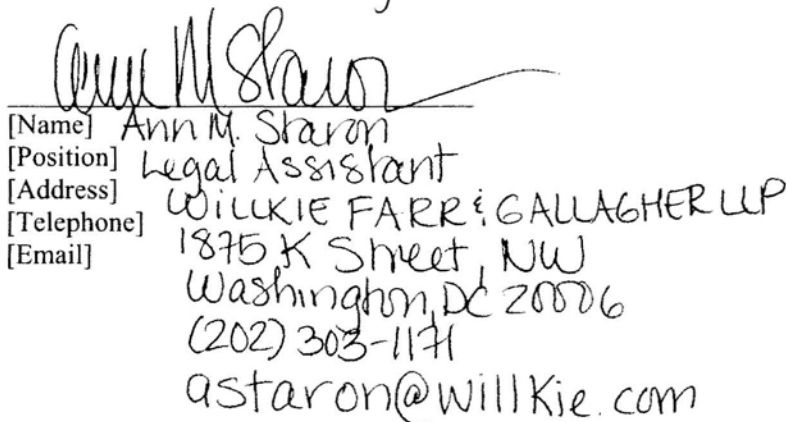 Ann M Staron
[Name] Ann M. Staron
[Position] Legal Assistant
[Address] WILLKIE FARR & GALLAGHER LLP
[Telephone] 1875 K Street, NW
[Email] Washington, DC 20006
(202) 303-1171
astaron@willkie.com